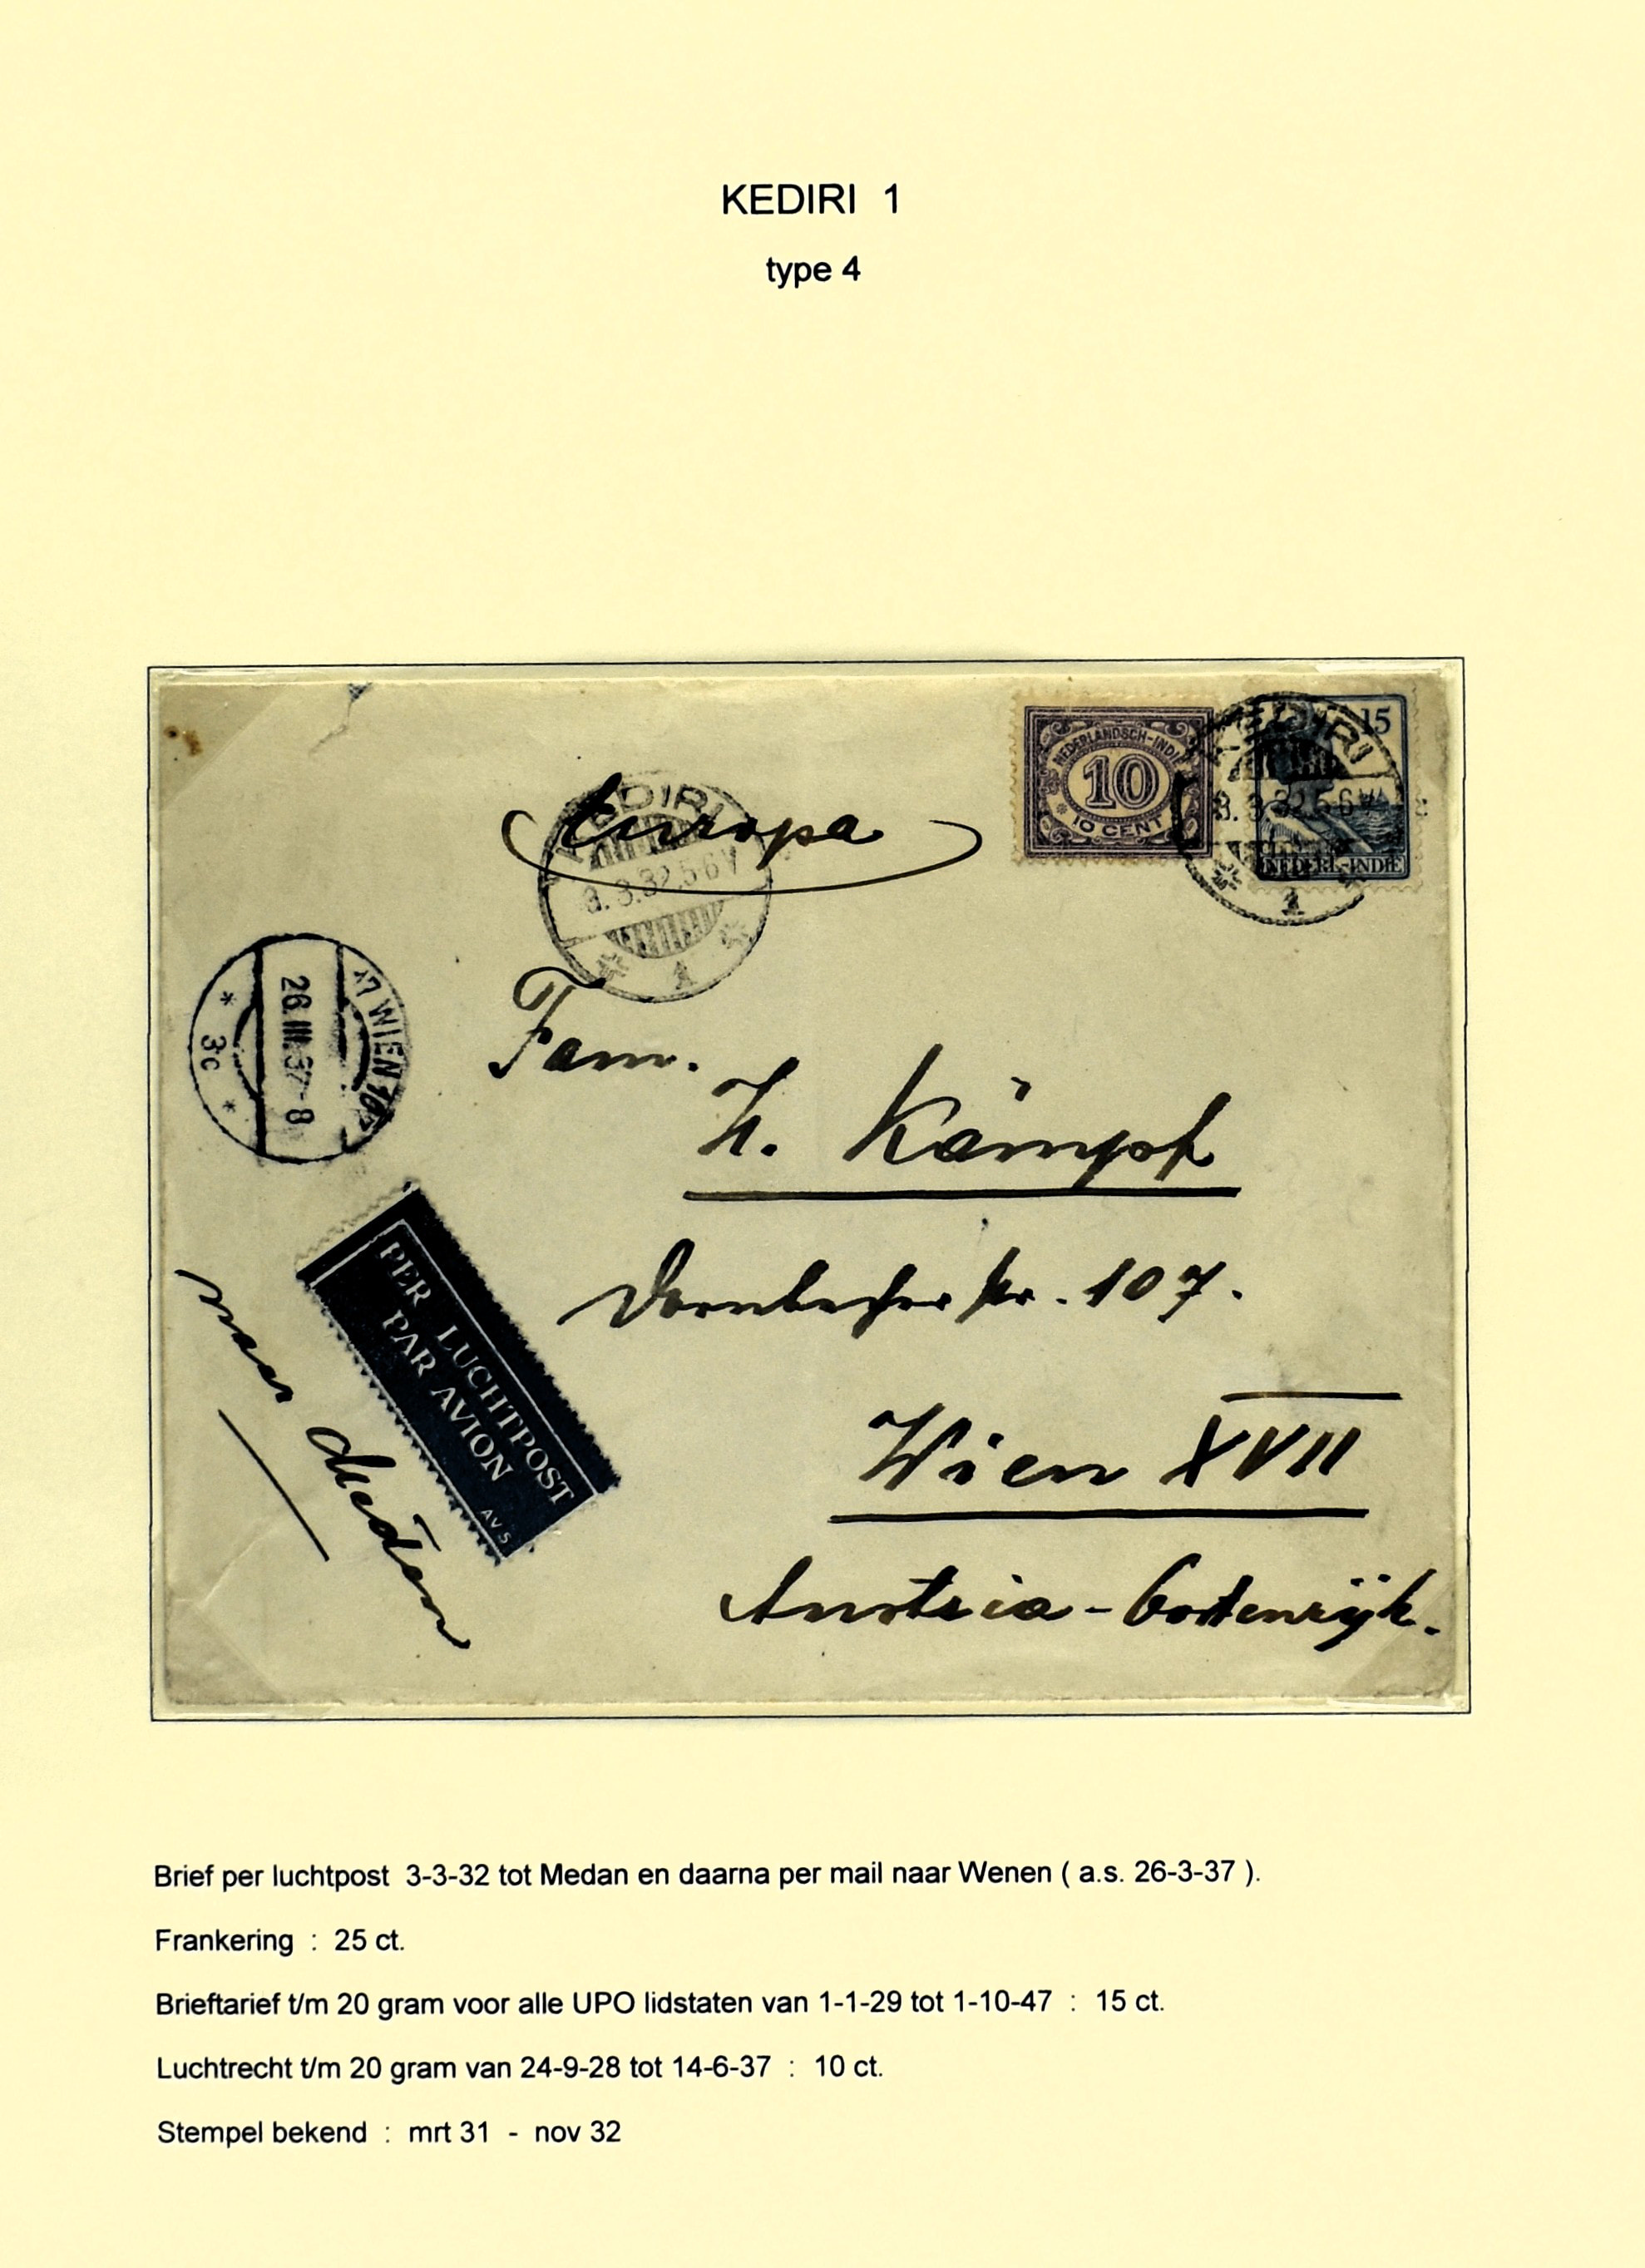 KEDIRI 1
type 4
NEDERLANDSCH-INDIE
10
10 CENT
15
NEDERL.-INDIE
KEDIRI
3.3.32.5.6 V
1
Europa
KEDIRI
3.3.32.5.6 V
1
17 WIEN 107
26.III.37-8
3c
Fam.
H. Kämpf
Dornbacherstr. 107.
Wien XVII
Austria - Oostenrijk.
PER LUCHTPOST
PAR AVION
AV 5
naar Medan
Brief per luchtpost 3-3-32 tot Medan en daarna per mail naar Wenen ( a.s. 26-3-37 ).
Frankering : 25 ct.
Brieftarief t/m 20 gram voor alle UPO lidstaten van 1-1-29 tot 1-10-47 : 15 ct.
Luchtrecht t/m 20 gram van 24-9-28 tot 14-6-37 : 10 ct.
Stempel bekend : mrt 31 - nov 32